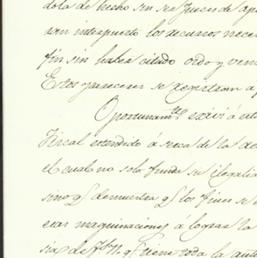 dola de hecho sin ser Jueces de ape
aun interpuesto los recursos nece
fin sin haber citado oido y venc
Estos pareceres se expresaron a p
Oportunam.te exivi á
Fiscal estendido á cerca de la de
el cual no solo funda su ilegalid
sino q.e demuestra q.e los fines se di
maquinaciones á lograr la
q.e tiene toda la auto